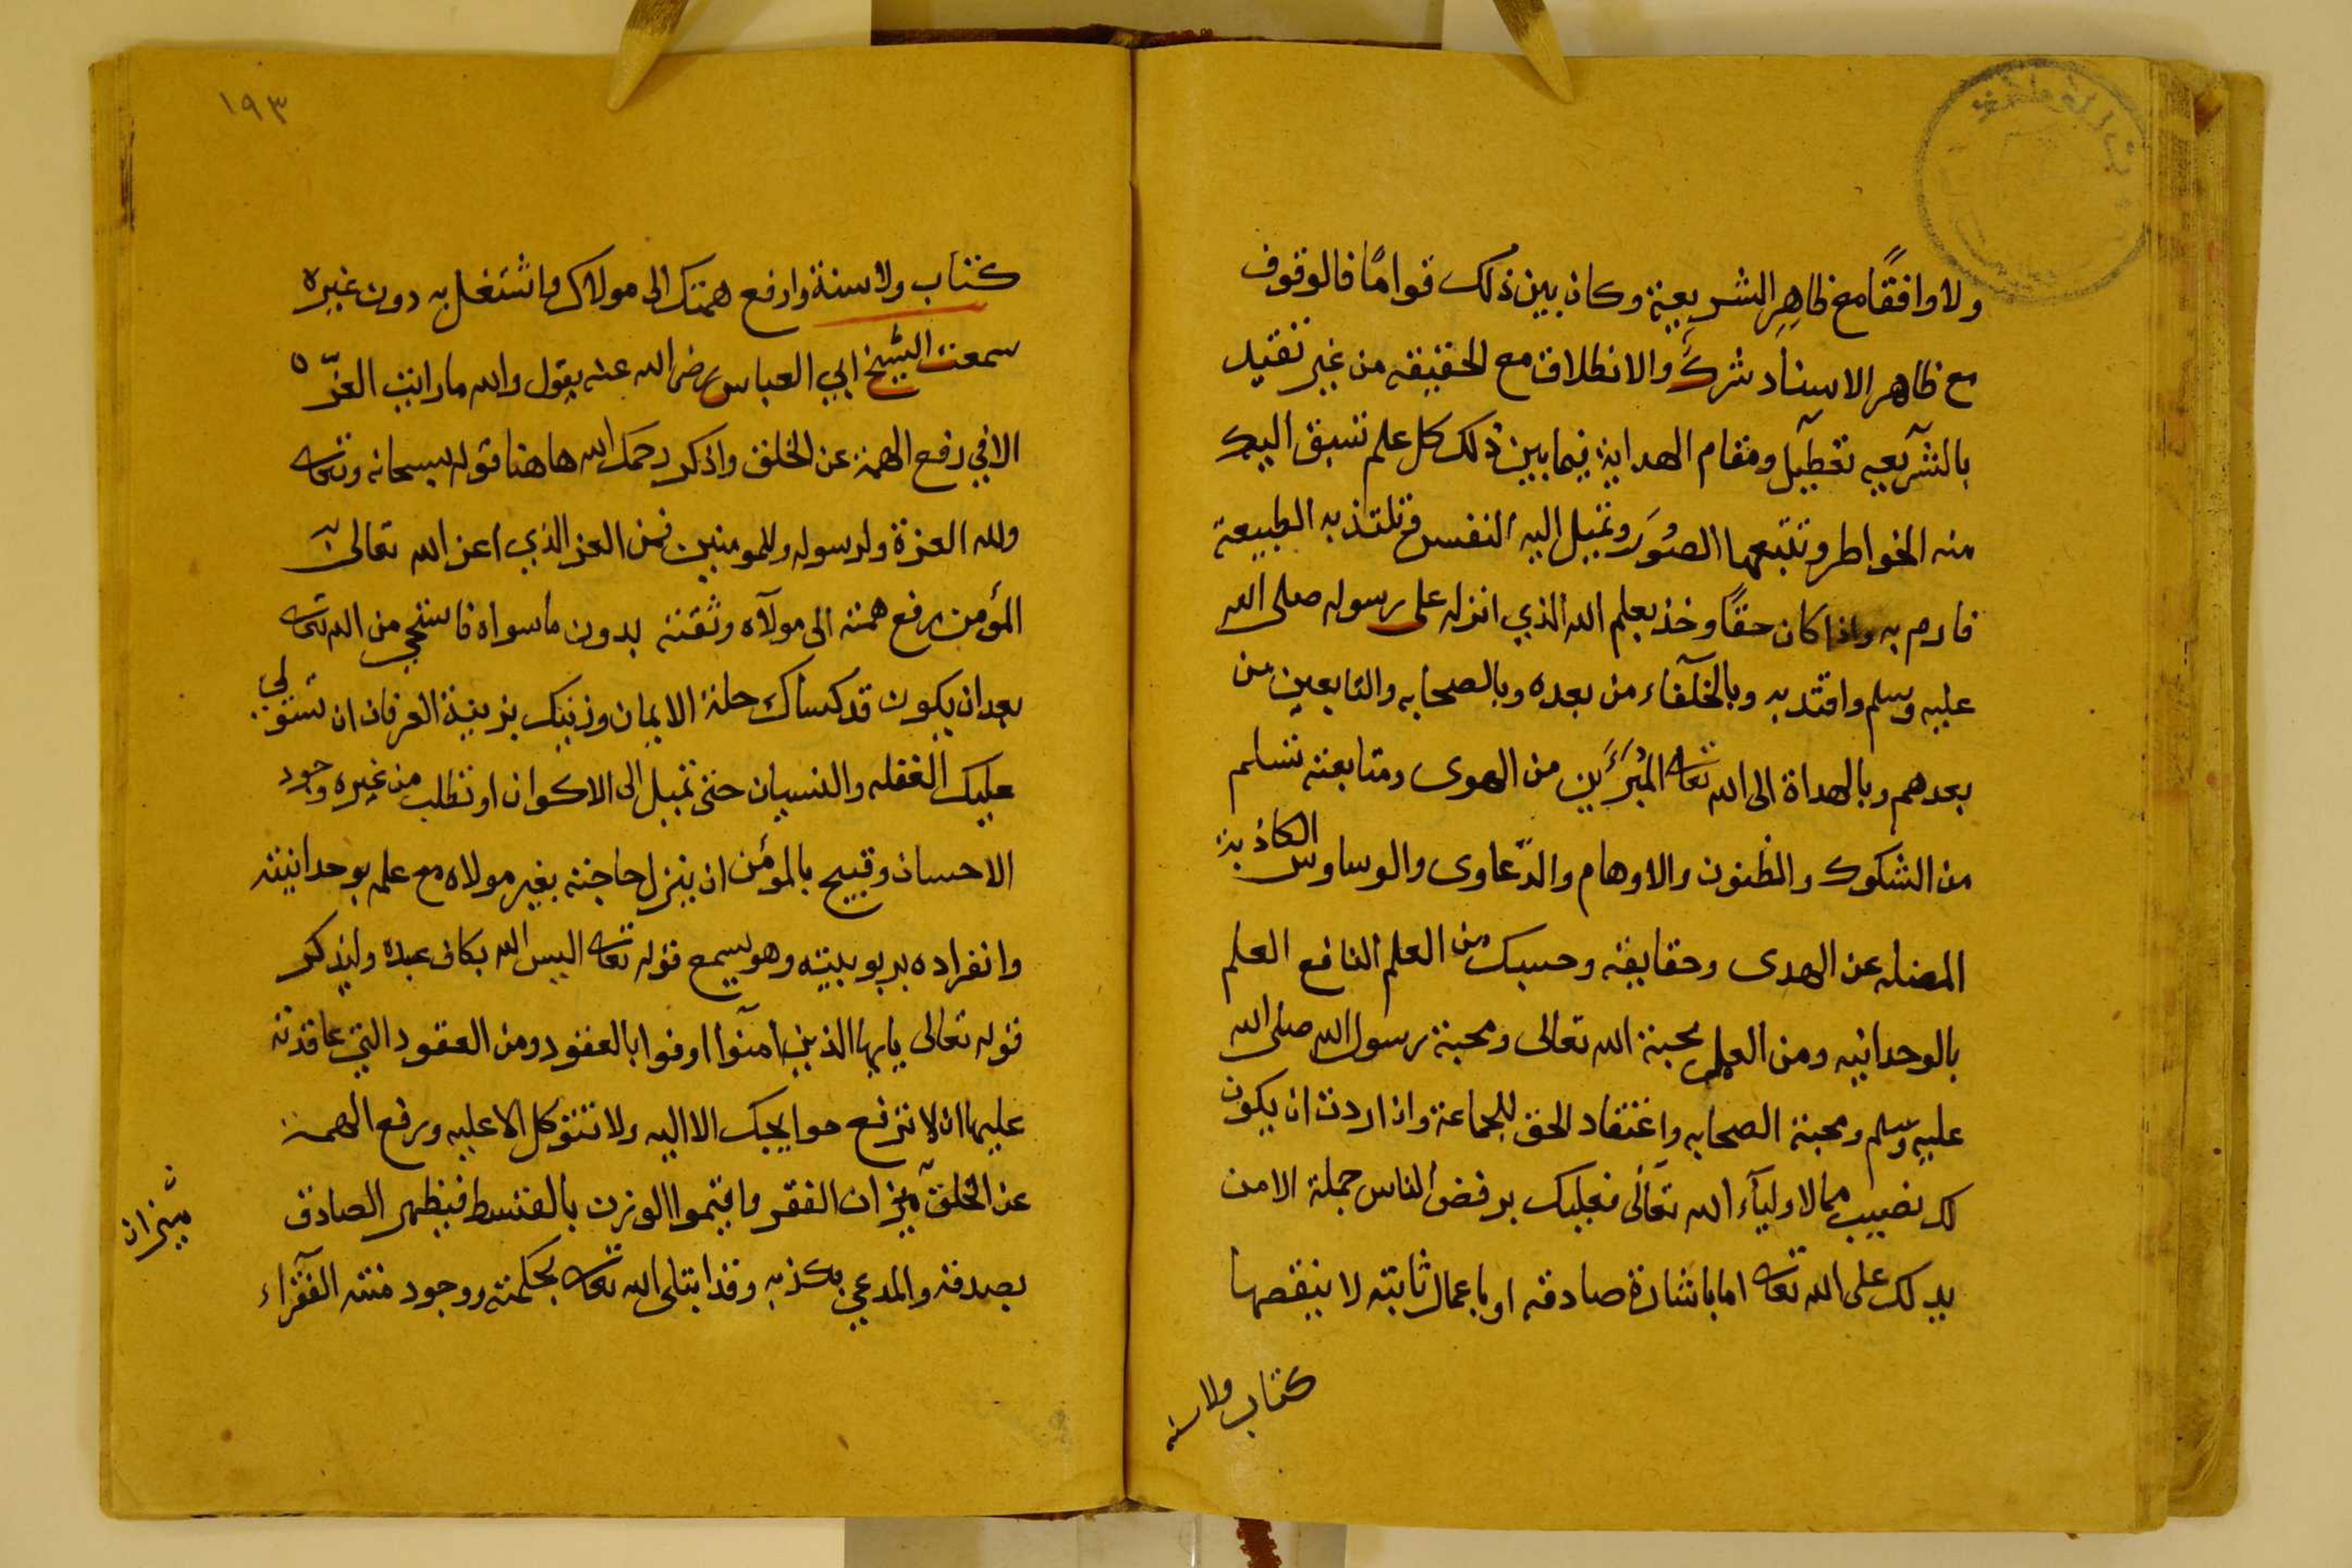 ولا وافقًا مع ظاهِرِ الشريعة وكان بين ذلك قوامًا فالوقوف
مع ظاهر الاسناد شركٌ والانطلاق مع الحقيقه من غير تقييد
بالشريعه تعطيل ومقام الهداية فيما بين ذلك كل علم تسبق اليك
منه الخواطر وتتبعها الصُوَر وتميل اليه النفس وتلتذ به الطبيعة
فارم به واذا كان حقًا وخذ بعلم الله الذي انزله على رسوله صلى الله
عليه وسلم واقتد به وبالخلفاء من بعده وبالصحابه والتابعين من
بعدهم وبالهداة الى الله تعالى المُبرَّءين من الهوى ومتابعته تسلم
من الشكوك والظنون والاوهام والدّعاوى والوساوس الكاذبة
المضله عن الهدى وحقايقه وحسبك من العلم النافع العلم
بالوحدانيه ومن العلم محبة الله تعالى ومحبة رسول الله صلى الله
عليه وسلم ومحبة الصحابه واعتقاد الحق للجماعة واذا اردت ان يكون
لك نصيب مما لاولياء الله تعالى فعليك برفض الناس جملة الا من
يدلك على الله تعالى اما باشارة صادقه او باعمال ثابته لا ينقصها
كتاب ولا سنه
١٩٣
كتاب ولا سنة وارفع همتك الى مولاك واشتغل به دون غيره
سمعت الشيخ ابي العباس رضى الله عنه يقول والله ما رايت العزّ
الا في رفع الهمة عن الخلق واذكر رحمك الله هاهنا قوله سبحانه وتعالى
ولله العزة ولرسوله وللمومنين فمن العز الذي اعز الله تعالى به
المؤمن رفع همته الى مولاه وثقته بدون ما سواه فاستحي من الله تعالى
بعد ان يكون قد كساك حلة الايمان وزينك بزينة العرفان ان تستولي
عليك الغفله والنسيان حتى تميل الى الاكوان او تطلب من غيره وجود
الاحسان وقبيح بالمؤمن ان ينزل حاجته بغير مولاه مع علمه بوحدانيته
وانفراده بربوبيته وهو يسمع قوله تعالى اليس الله بكاف عبده وليذكر
قوله تعالى يايها الذين امنوا اوفوا بالعقود ومن العقود التي عاقدته
عليها ان لا ترفع حوايجك الا اليه ولا تتوكل الا عليه ورفع الهمة
عن الخلق ميزان الفقر واقيموا الوزن بالقسط فيظهر الصادق
ميزان
بصدقه والمدعي بكذبه وقد ابتلى الله تعالى بحكمته ووجود منته الفقراء